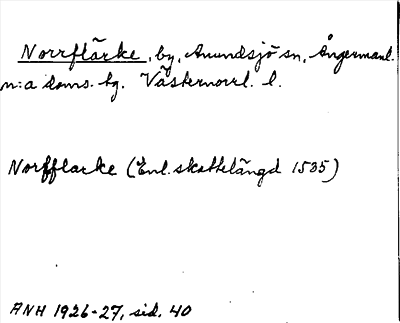 Norrflärke, by, Anundsjö sn, Ångermanl.
n:a doms. tg. Västernorrl. l.
Norfflarke (Enl. skattelängd 1535)
ANH 1926-27, sid. 40